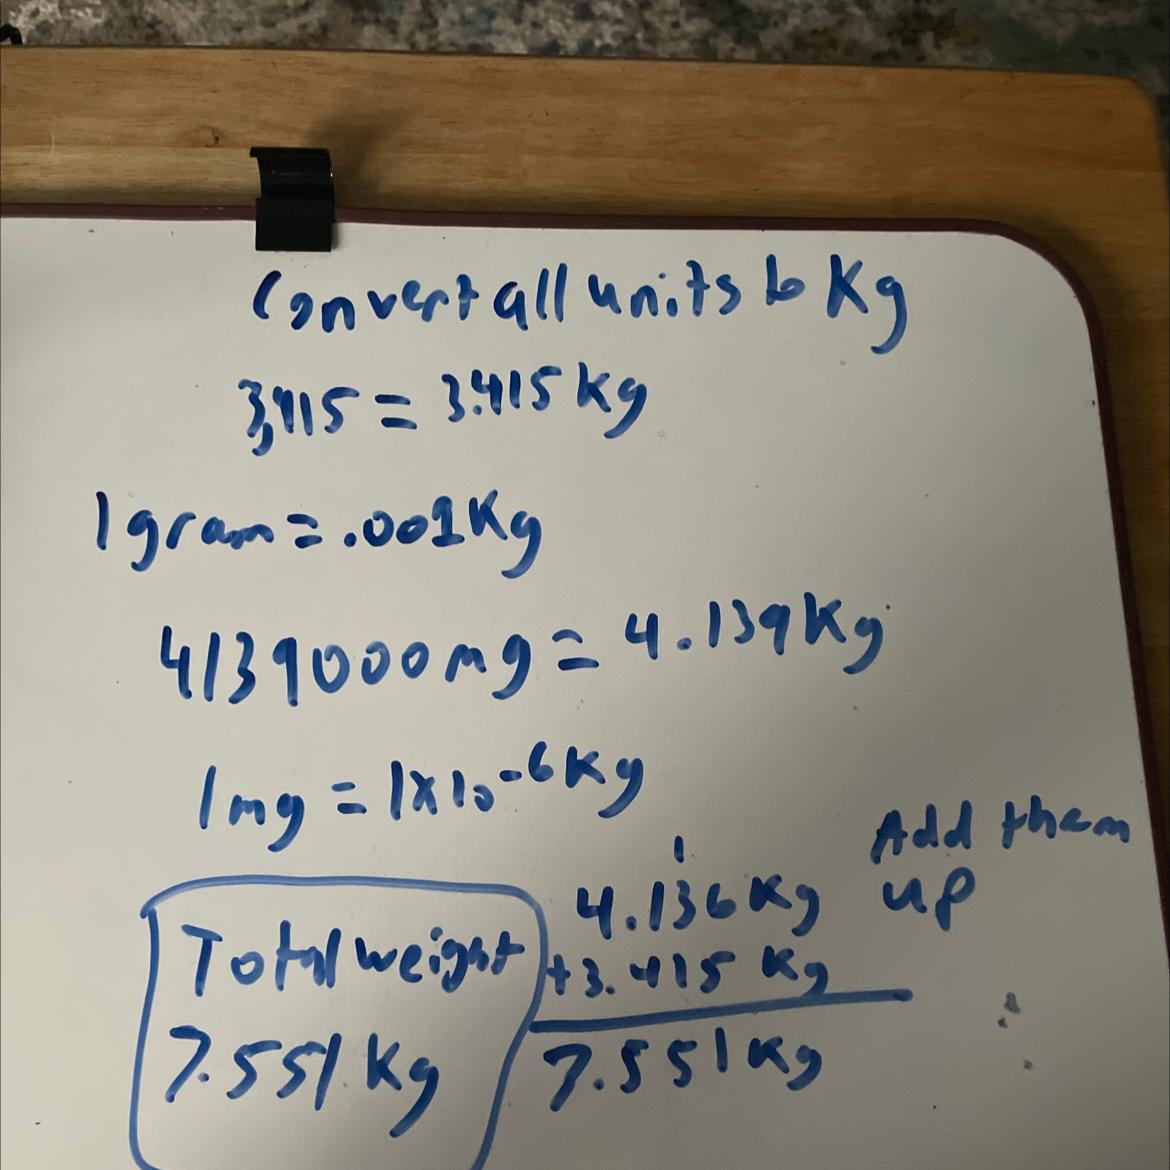 Convert all units to Kg
3,415 = 3.415 Kg
1 gram = .001 Kg
4139000 mg = 4.139 Kg
1 mg = 1x10⁻⁶ Kg
Add them
up
1
4.136 Kg
+3.415 Kg
7.551 Kg
Total weight
7.551 Kg